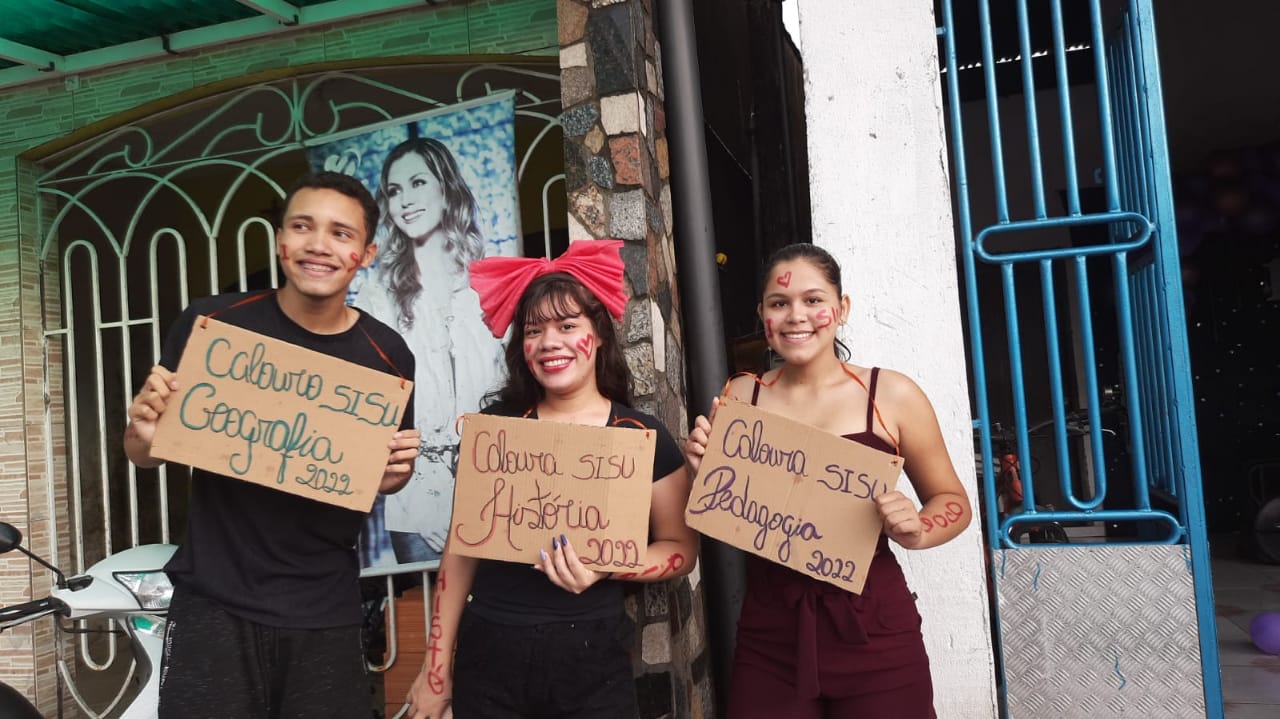 Calouro SISU
Geografia
2022
Caloura SISU
História
2022
Caloura SISU
Pedagogia
2022